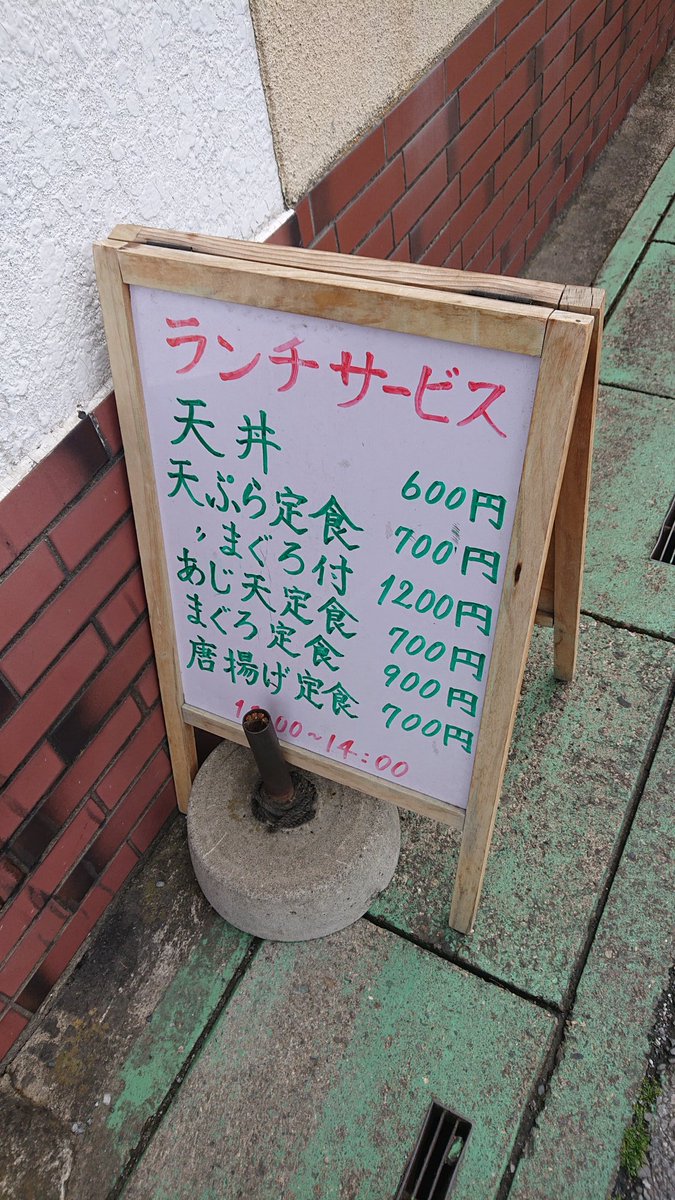 ランチサービス
天丼 600円
天ぷら定食 700円
〃 まぐろ付 1200円
あじ天定食 700円
まぐろ定食 900円
唐揚げ定食 700円
~14:00